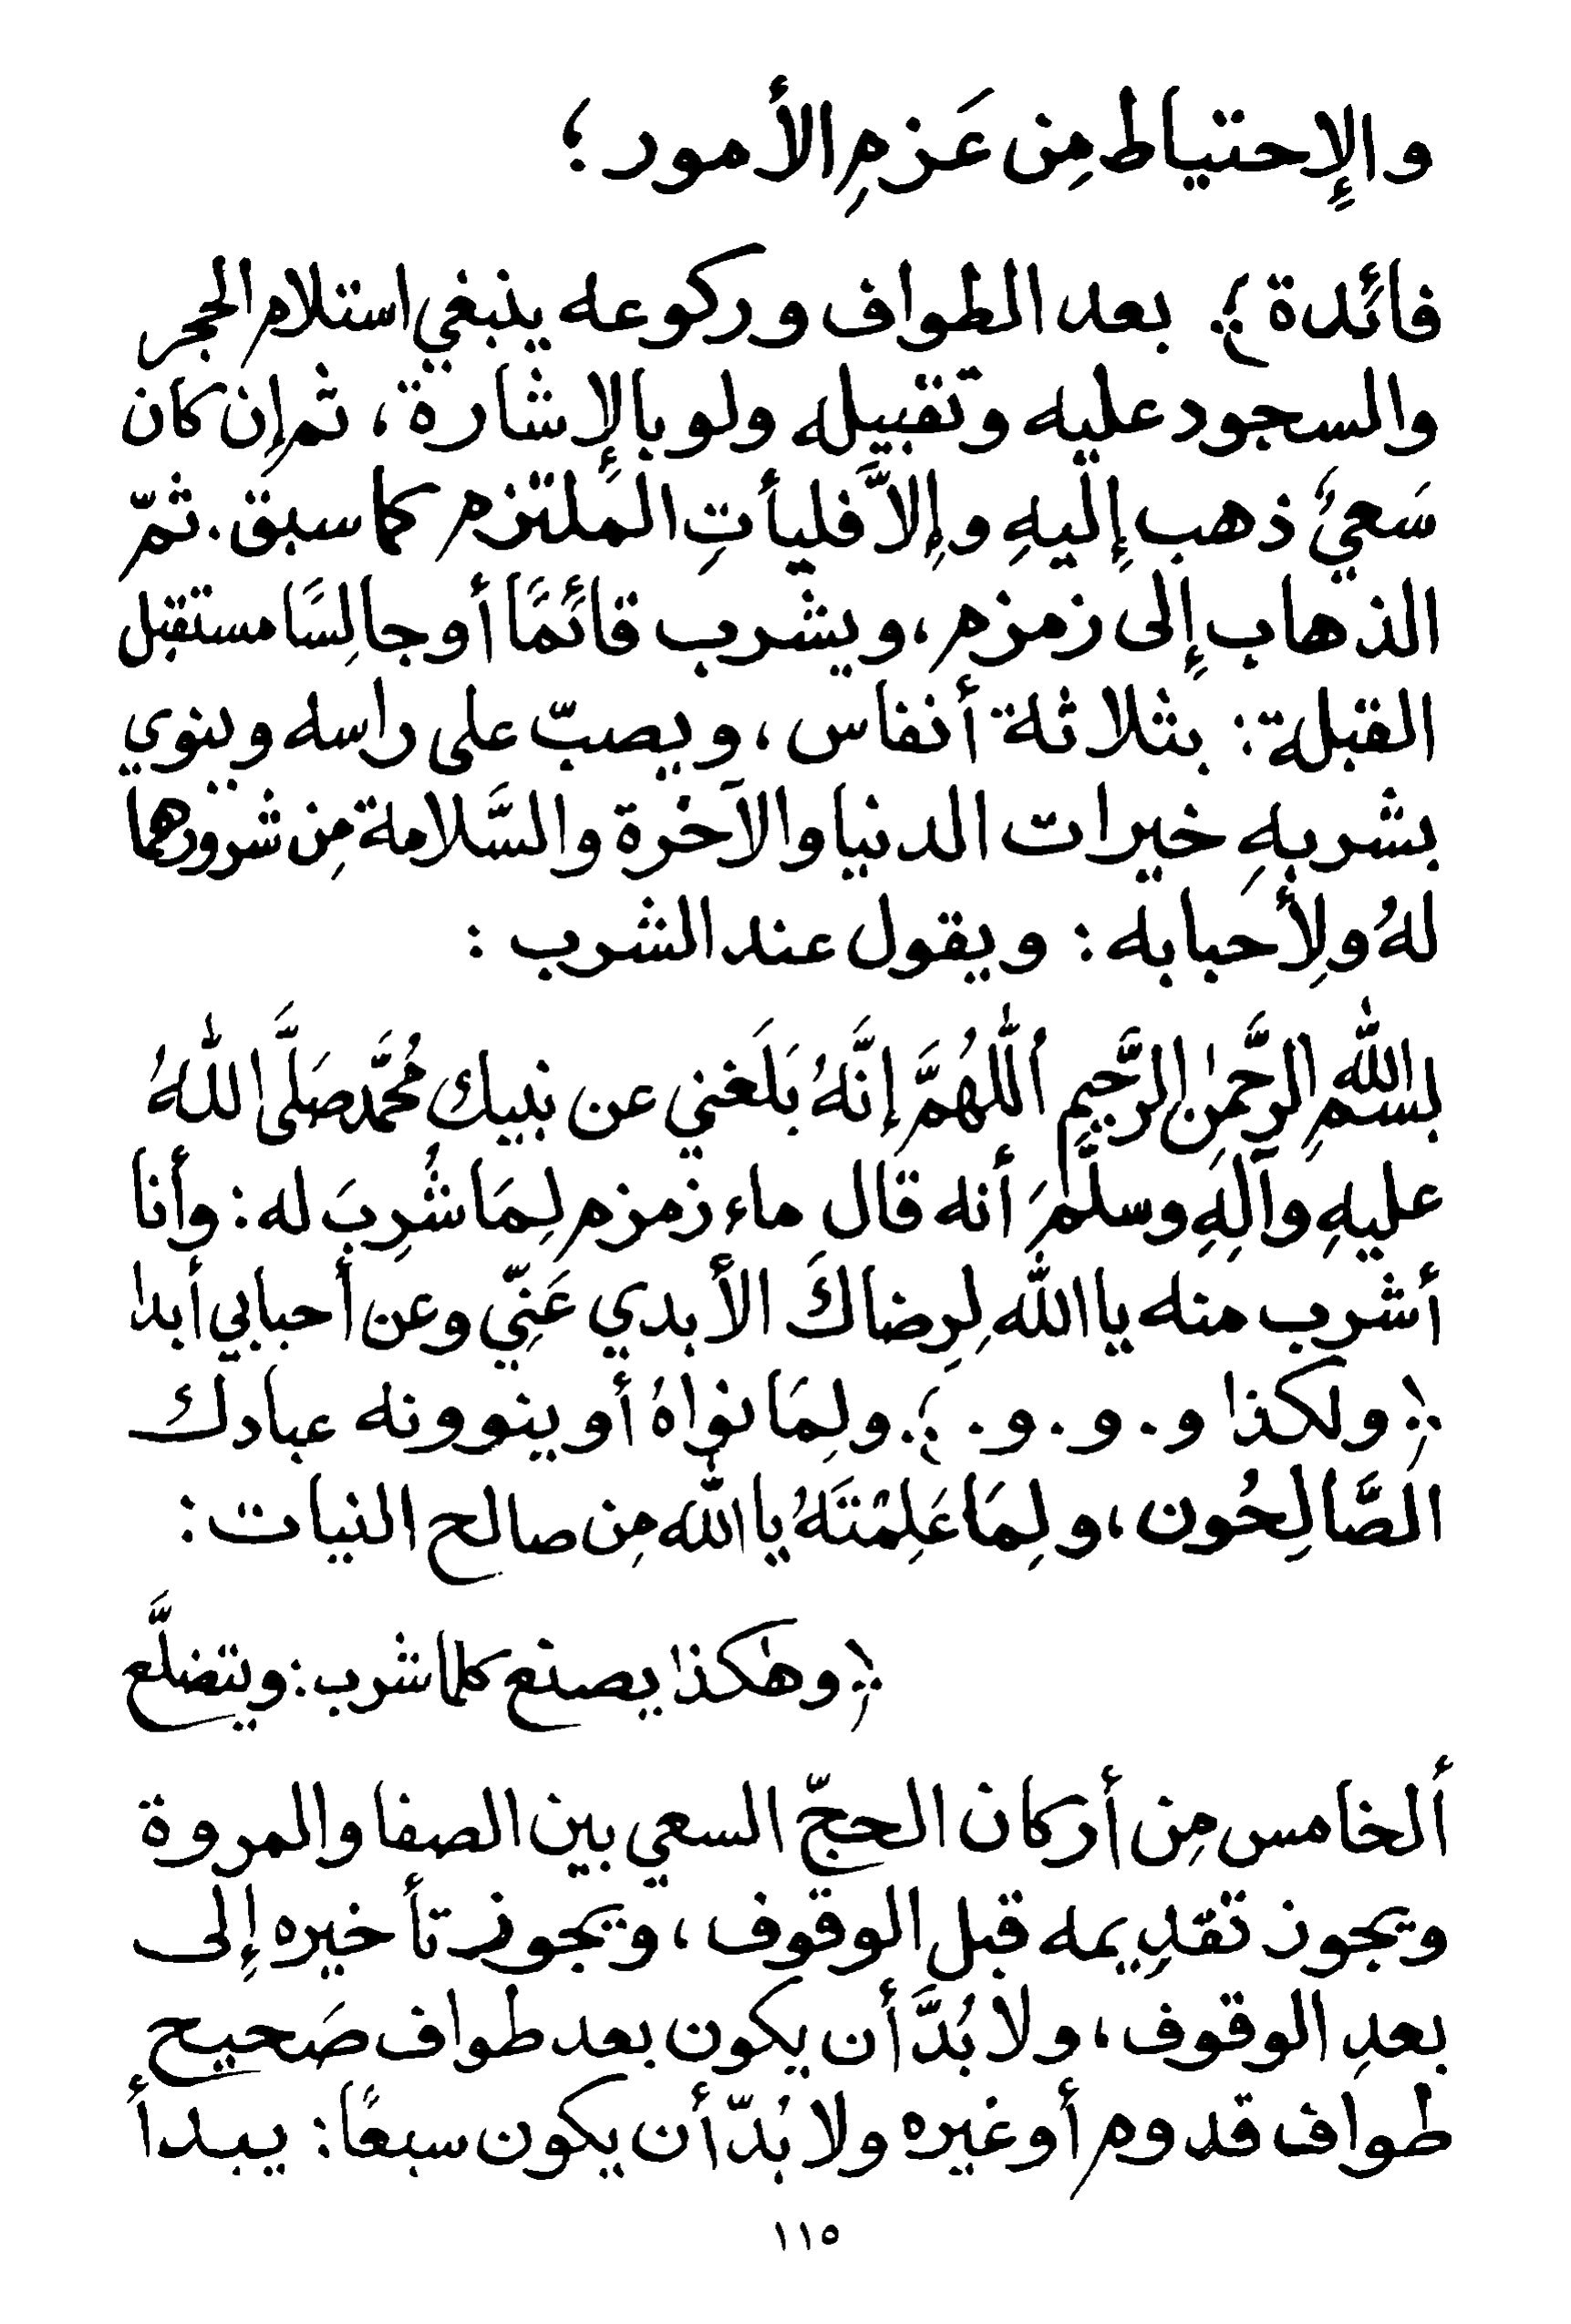 والإحتياط مِن عَزمِ الأمور ؛
فائدة ﴾ بعد الطواف وركوعه ينبغي استلام الحجر
والسجود عليه وتقبيله ولو بالإشارة ، ثم إن كان
سَعيٌ ذهب إليهِ وإلاَّ فليأتِ المَلتزم كما سبق . ثمّ
الذهاب إلى زمزم ، ويشرب قائمًا أو جالِسًا مستقبل
القبلة : بثلاثة أنفاس ، ويصبّ على راسه وينوي
بشربهِ خيرات الدنيا والآخرة والسَّلامة مِن شرورهما
لهُ ولِأَحبابه : ويقول عند الشرب :
بسم اللهِ الرَّحمٰنِ الرَّحِيمِ أللهُمَّ إنَّهُ بَلَغني عن نبيك مُحَمَّد صَلَّى اللهُ
عليهِ وآلِهِ وسلَّمَ أنه قال ماء زمزم لِمَا شُرِبَ له : وأنا
أشرب منه يا الله لِرِضاكَ الأبدي عَنِّي وعن أحبابي أبدا
﴿ ولكذا و . و . و . ﴾ ولِمَا نواهُ أو ينوونه عبادك
الصَّالِحُون ، ولِمَا عَلِمْتَهُ يا الله مِن صالح النيات :
﴿ وهٰكذا يصنع كلما شرب : ويتضلَّع
ألخامس مِن أركان الحجّ السعي بين الصفا والمروة
ويجوز تقديمه قبل الوقوف ، ويجوز تأخيره إلى
بعدِ الوقوف ، ولا بُدَّ أن يكون بعد طواف صَحيح
طواف قدوم أو غيره ولا بُدّ أن يكون سبعًا : يبدأ
١١٥